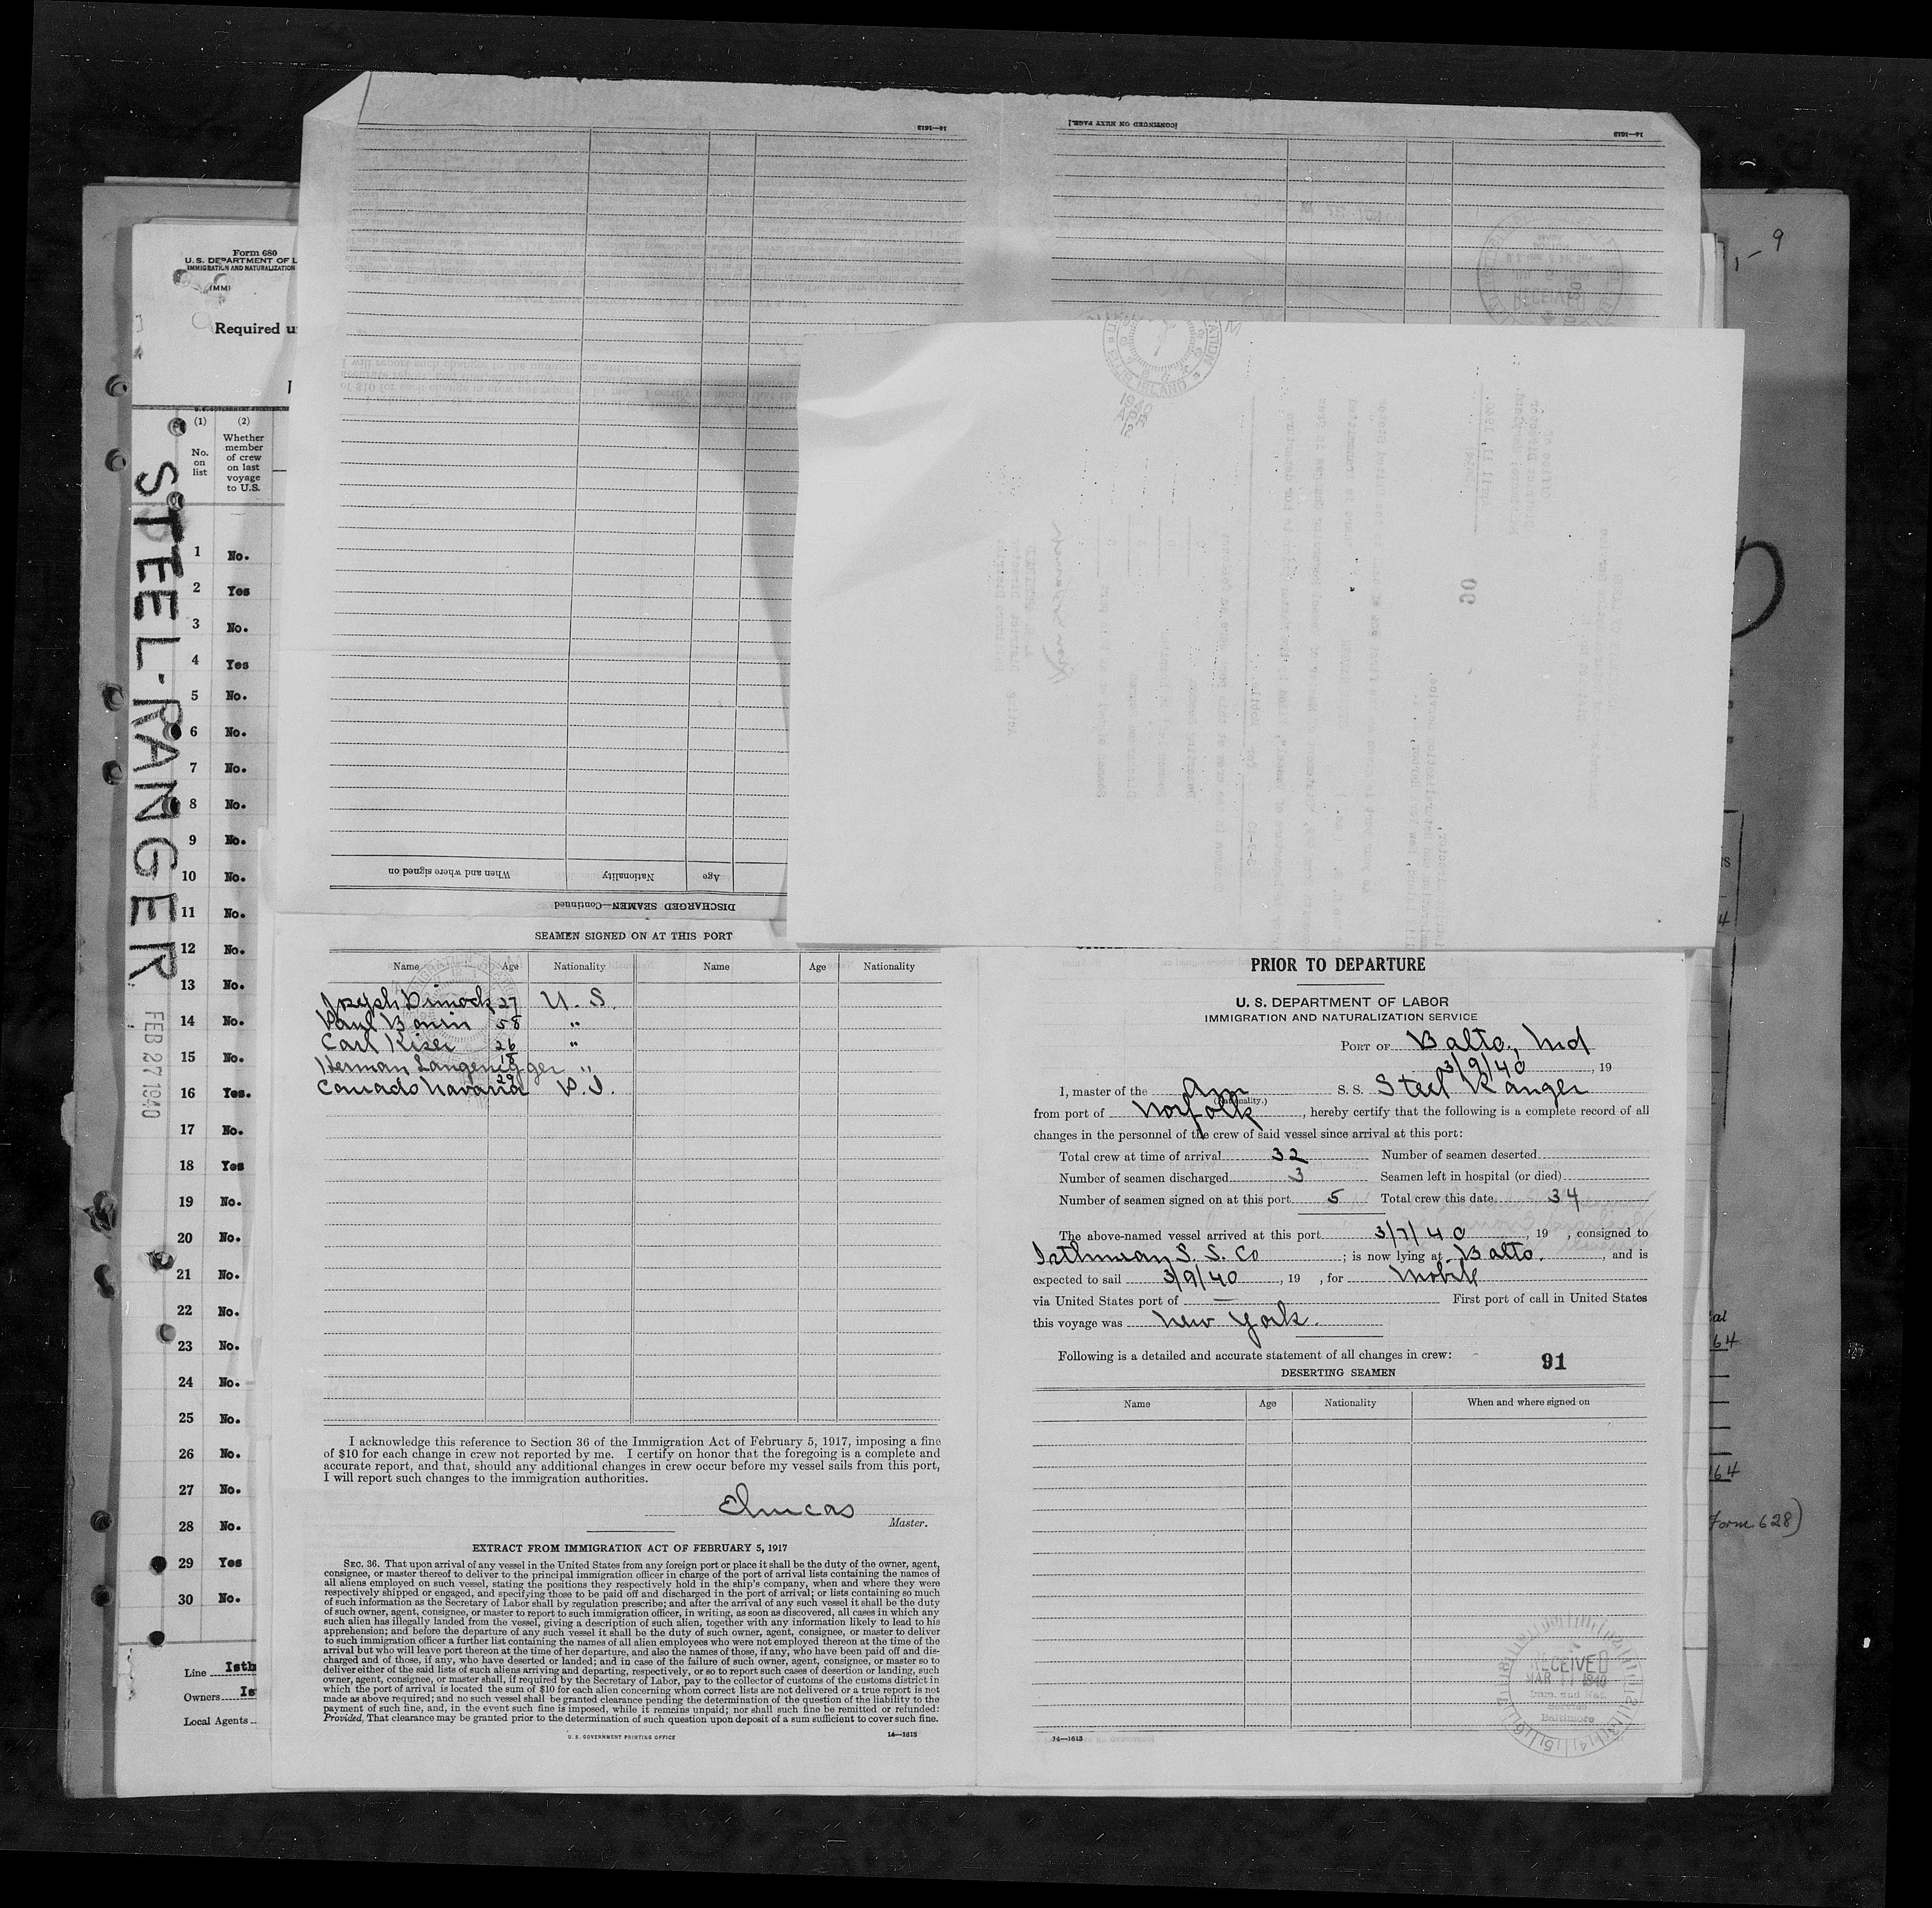 Form 680
U. S. DEPARTMENT OF L
IMMIGRATION AND NATURALIZATION
(IMMI
Required u
(1) (2)
No. on list
Whether member of crew on last voyage to U.S.
1 No.
2 Yes
3 No.
4 Yes
5 No.
6 No.
7 No.
8 No.
9 No.
10 No.
11 No.
12 No.
13 No.
14 No.
15 No.
16 Yes.
17 No.
18 Yes
19 No.
20 No.
21 No.
22 No.
23 No.
24 No.
25 No.
26 No.
27 No.
28 No.
29 Yes
30 No.
Line Isth
Owners Is
Local Agents
STEEL-RANGER
FEB 27 1940
14—1613
[CONTINUED ON NEXT PAGE.]
14—1613
DISCHARGED SEAMEN—Continued
Age Nationality When and where signed on
90
SEAMEN SIGNED ON AT THIS PORT
Name Age Nationality Name Age Nationality
Joseph Dimock 27 U. S.
Paul Bonin 58 "
Carl Kiser 26 "
Herman Langenegger 18 "
Conrado Navarra 29 P. I.
I acknowledge this reference to Section 36 of the Immigration Act of February 5, 1917, imposing a fine
of $10 for each change in crew not reported by me. I certify on honor that the foregoing is a complete and
accurate report, and that, should any additional changes in crew occur before my vessel sails from this port,
I will report such changes to the immigration authorities.
Master.
EXTRACT FROM IMMIGRATION ACT OF FEBRUARY 5, 1917
SEC. 36. That upon arrival of any vessel in the United States from any foreign port or place it shall be the duty of the owner, agent,
consignee, or master thereof to deliver to the principal immigration officer in charge of the port of arrival lists containing the names of
all aliens employed on such vessel, stating the positions they respectively hold in the ship's company, when and where they were
respectively shipped or engaged, and specifying those to be paid off and discharged in the port of arrival; or lists containing so much
of such information as the Secretary of Labor shall by regulation prescribe; and after the arrival of any such vessel it shall be the duty
of such owner, agent, consignee, or master to report to such immigration officer, in writing, as soon as discovered, all cases in which any
such alien has illegally landed from the vessel, giving a description of such alien, together with any information likely to lead to his
apprehension; and before the departure of any such vessel it shall be the duty of such owner, agent, consignee, or master to deliver
to such immigration officer a further list containing the names of all alien employees who were not employed thereon at the time of the
arrival but who will leave port thereon at the time of her departure, and also the names of those, if any, who have been paid off and dis-
charged and of those, if any, who have deserted or landed; and in case of the failure of such owner, agent, consignee, or master so to
deliver either of the said lists of such aliens arriving and departing, respectively, or so to report such cases of desertion or landing, such
owner, agent, consignee, or master shall, if required by the Secretary of Labor, pay to the collector of customs of the customs district in
which the port of arrival is located the sum of $10 for each alien concerning whom correct lists are not delivered or a true report is not
made as above required; and no such vessel shall be granted clearance pending the determination of the question of the liability to the
payment of such fine, and, in the event such fine is imposed, while it remains unpaid; nor shall such fine be remitted or refunded:
Provided, That clearance may be granted prior to the determination of such question upon deposit of a sum sufficient to cover such fine.
U. S. GOVERNMENT PRINTING OFFICE 14—1613
PRIOR TO DEPARTURE
U. S. DEPARTMENT OF LABOR
IMMIGRATION AND NATURALIZATION SERVICE
PORT OF Balto., Md
3/9/40, 19
I, master of the Am S. S. Steel Ranger
(Nationality.)
from port of Norfolk, hereby certify that the following is a complete record of all
changes in the personnel of the crew of said vessel since arrival at this port:
Total crew at time of arrival 32 Number of seamen deserted
Number of seamen discharged 3 Seamen left in hospital (or died)
Number of seamen signed on at this port 5 Total crew this date 34
The above-named vessel arrived at this port 3/7/40, 19 , consigned to
Isthmian S. S. Co; is now lying at Balto., and is
expected to sail 3/9/40, 19 , for Mobile
via United States port of — First port of call in United States
this voyage was New York.
Following is a detailed and accurate statement of all changes in crew:
91
DESERTING SEAMEN
Name Age Nationality When and where signed on
RECEIVED
MAR 11 1940
Imm. and Nat.
Baltimore
14—1613
9
64
164
Form 628)